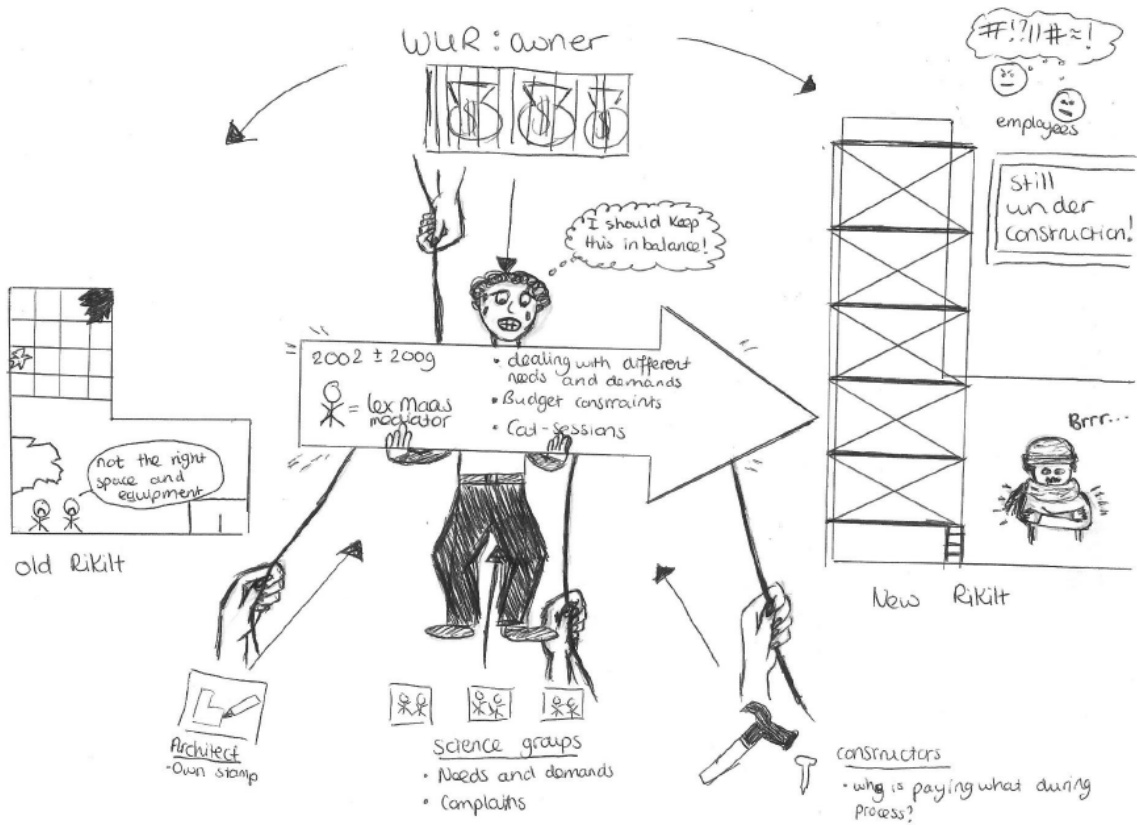 WUR : owner
#!?11#≈!
employees
Still
under
construction!
I should keep
this in balance!
2002 ± 2009
= lex Maas
mediator
• dealing with different
needs and demands
• Budget constraints
• Cat-sessions
not the right
space and
equipment
old Rikilt
Brrr...
New Rikilt
Architect
-Own stamp
Science groups
• Needs and demands
• Complaiths
constructors
• who is paying what during
process?